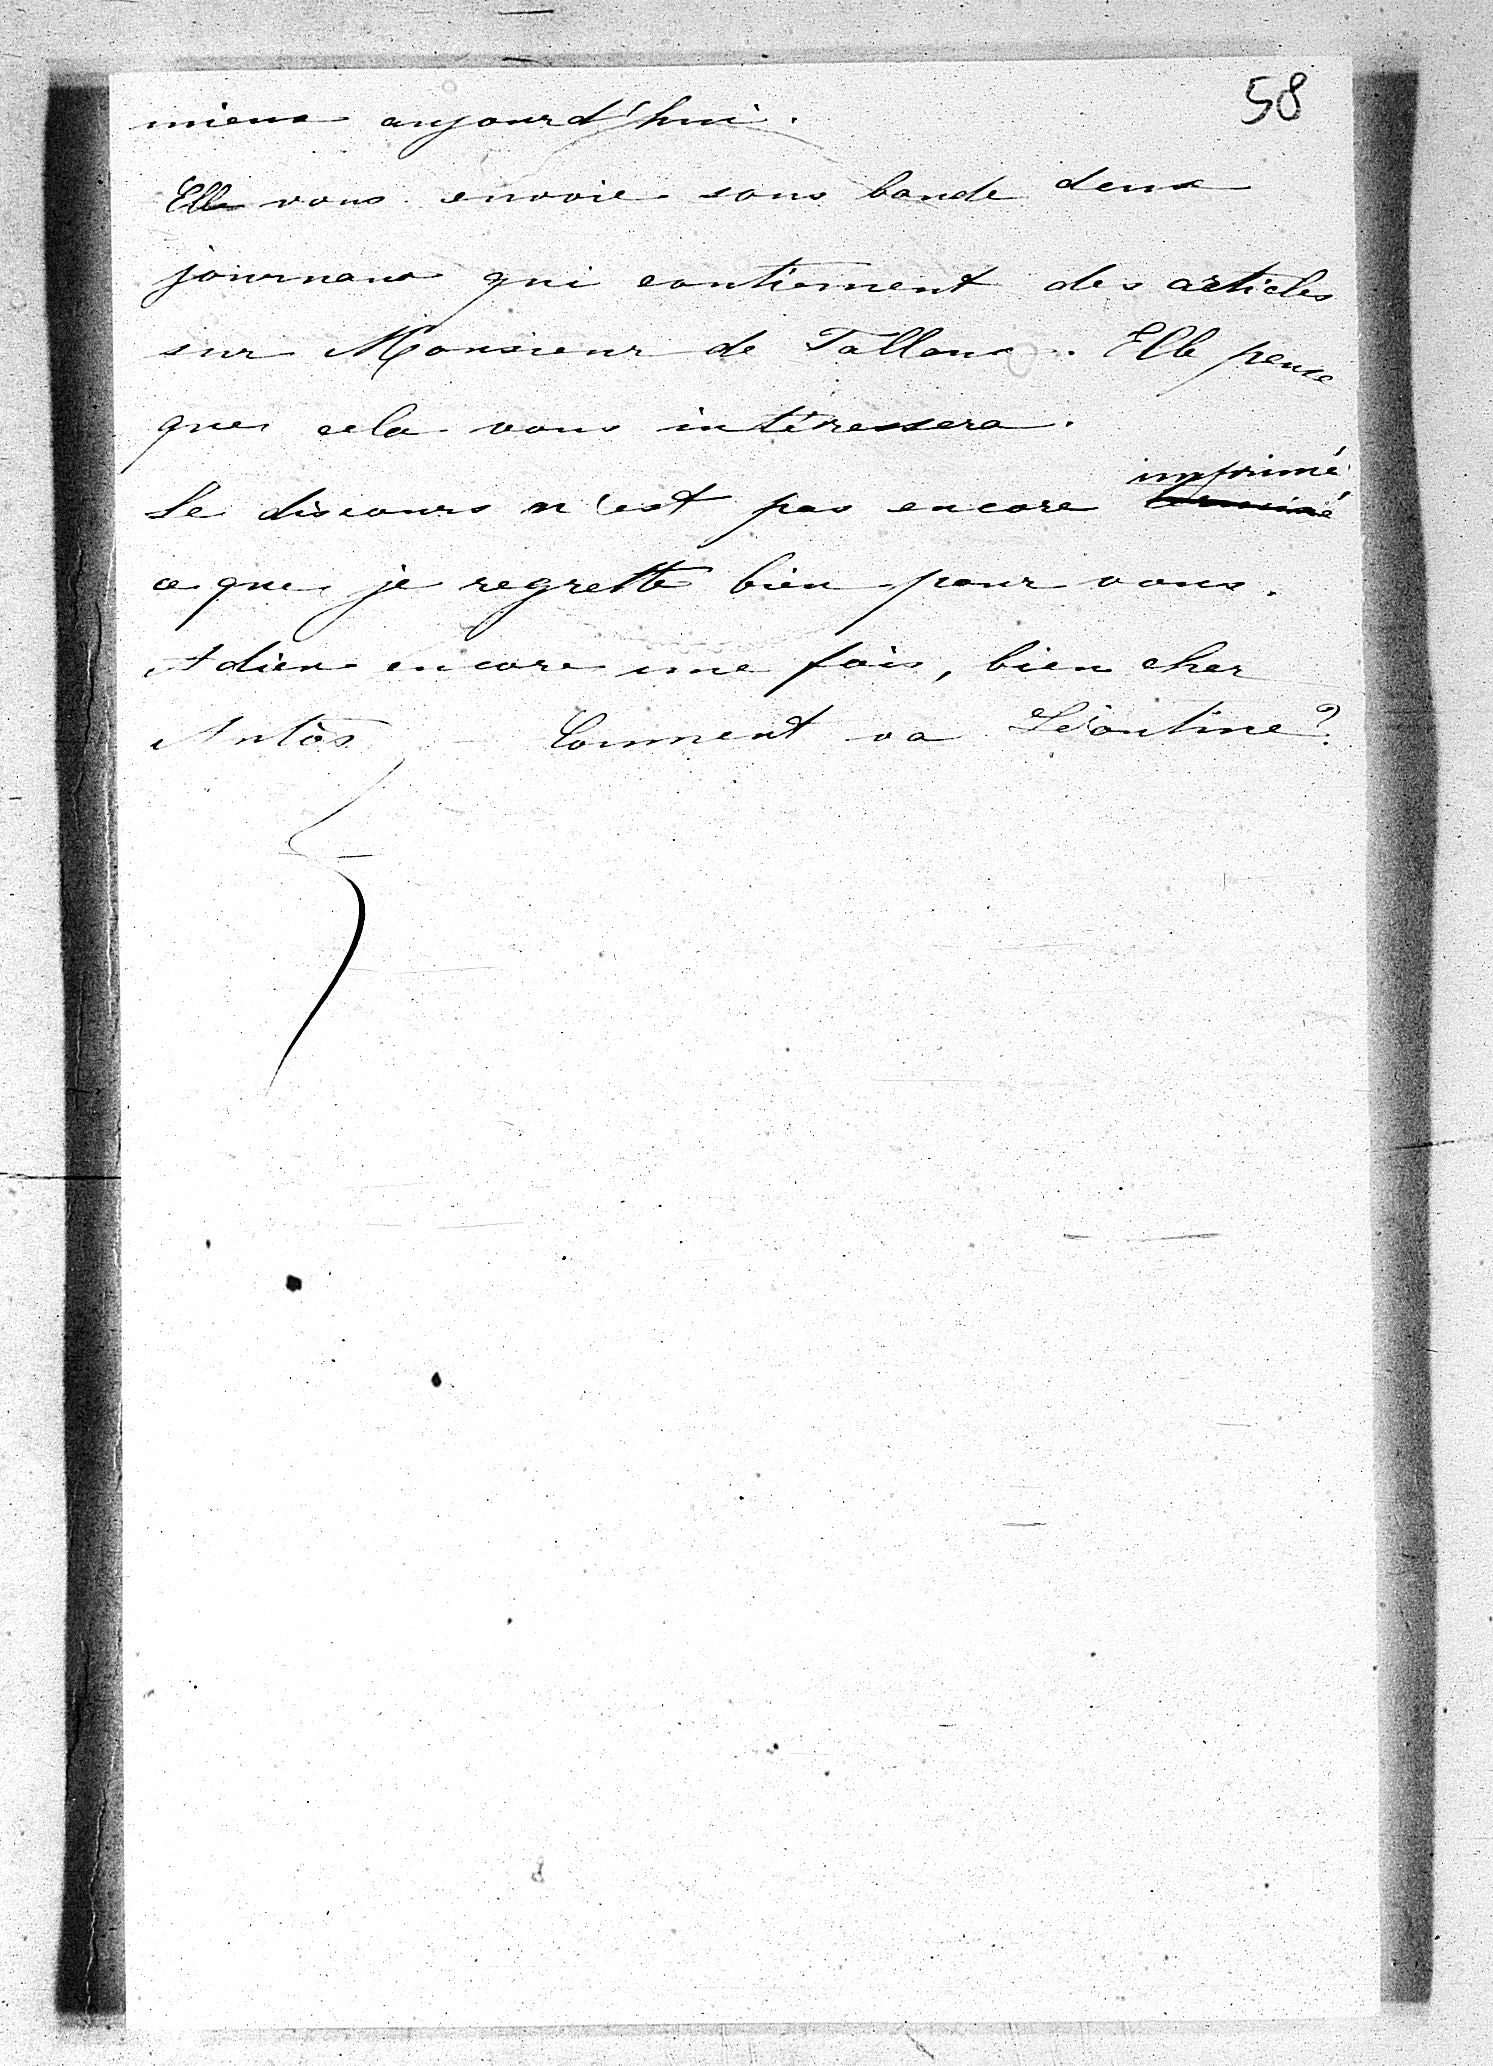 58
mieux aujourd'hui.
Elle vous envoie sous bande deux
journaux qui contiennent des articles
sur Monsieur de Falloux. Elle pense
que cela vous intéressera.
imprimé
Le discours n'est pas encore terminé
ce que je regrette bien pour vous.
Adieu encore une fois, bien cher
Antos Comment va Léontine?